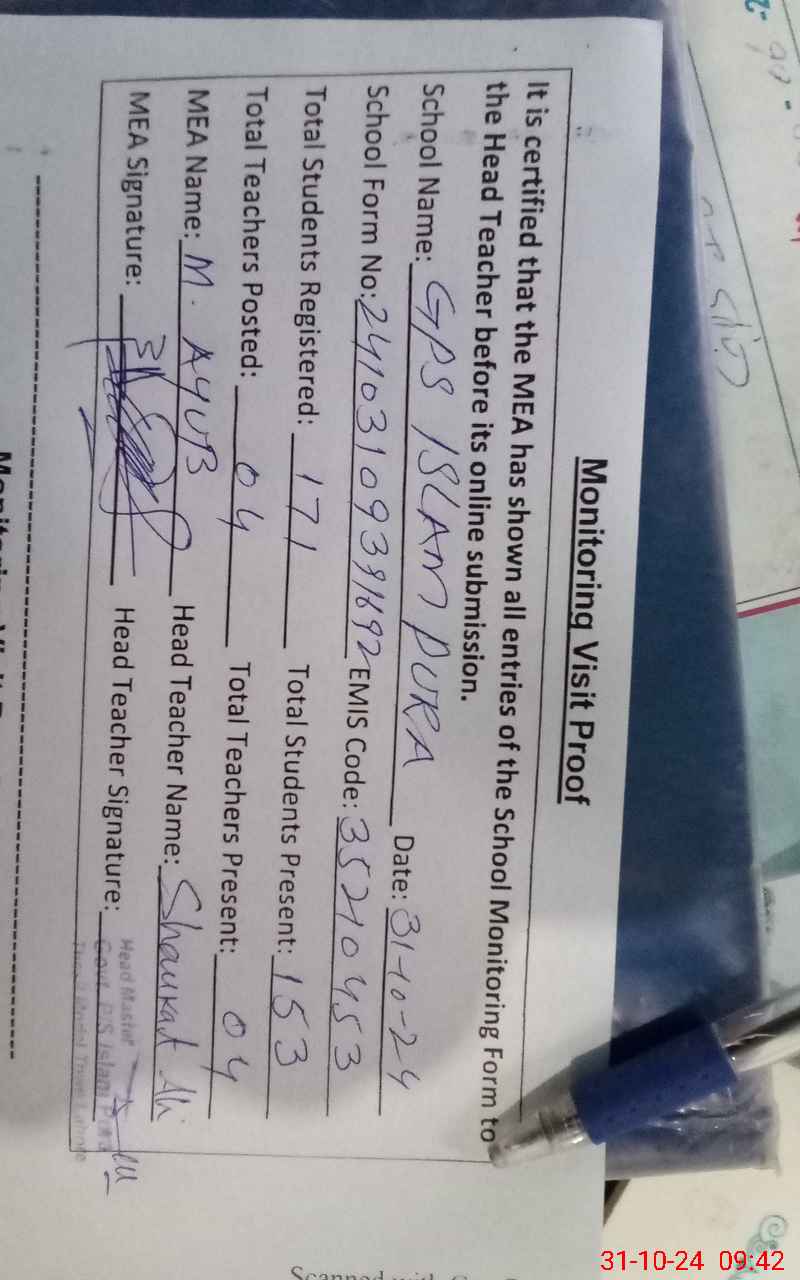 Monitoring Visit Proof
It is certified that the MEA has shown all entries of the School Monitoring Form to
the Head Teacher before its online submission.
School Name: GPS ISLAM PURA Date: 31-10-24
School Form No: EMIS Code: 35210453
Total Students Registered: 171 Total Students Present: 153
Total Teachers Posted: 04 Total Teachers Present: 04
MEA Name: M. AYUB Head Teacher Name: Shaukat Ali
MEA Signature: Head Teacher Signature:
Head Master
Govt. P/S Islam Pura
31-10-24 09:42